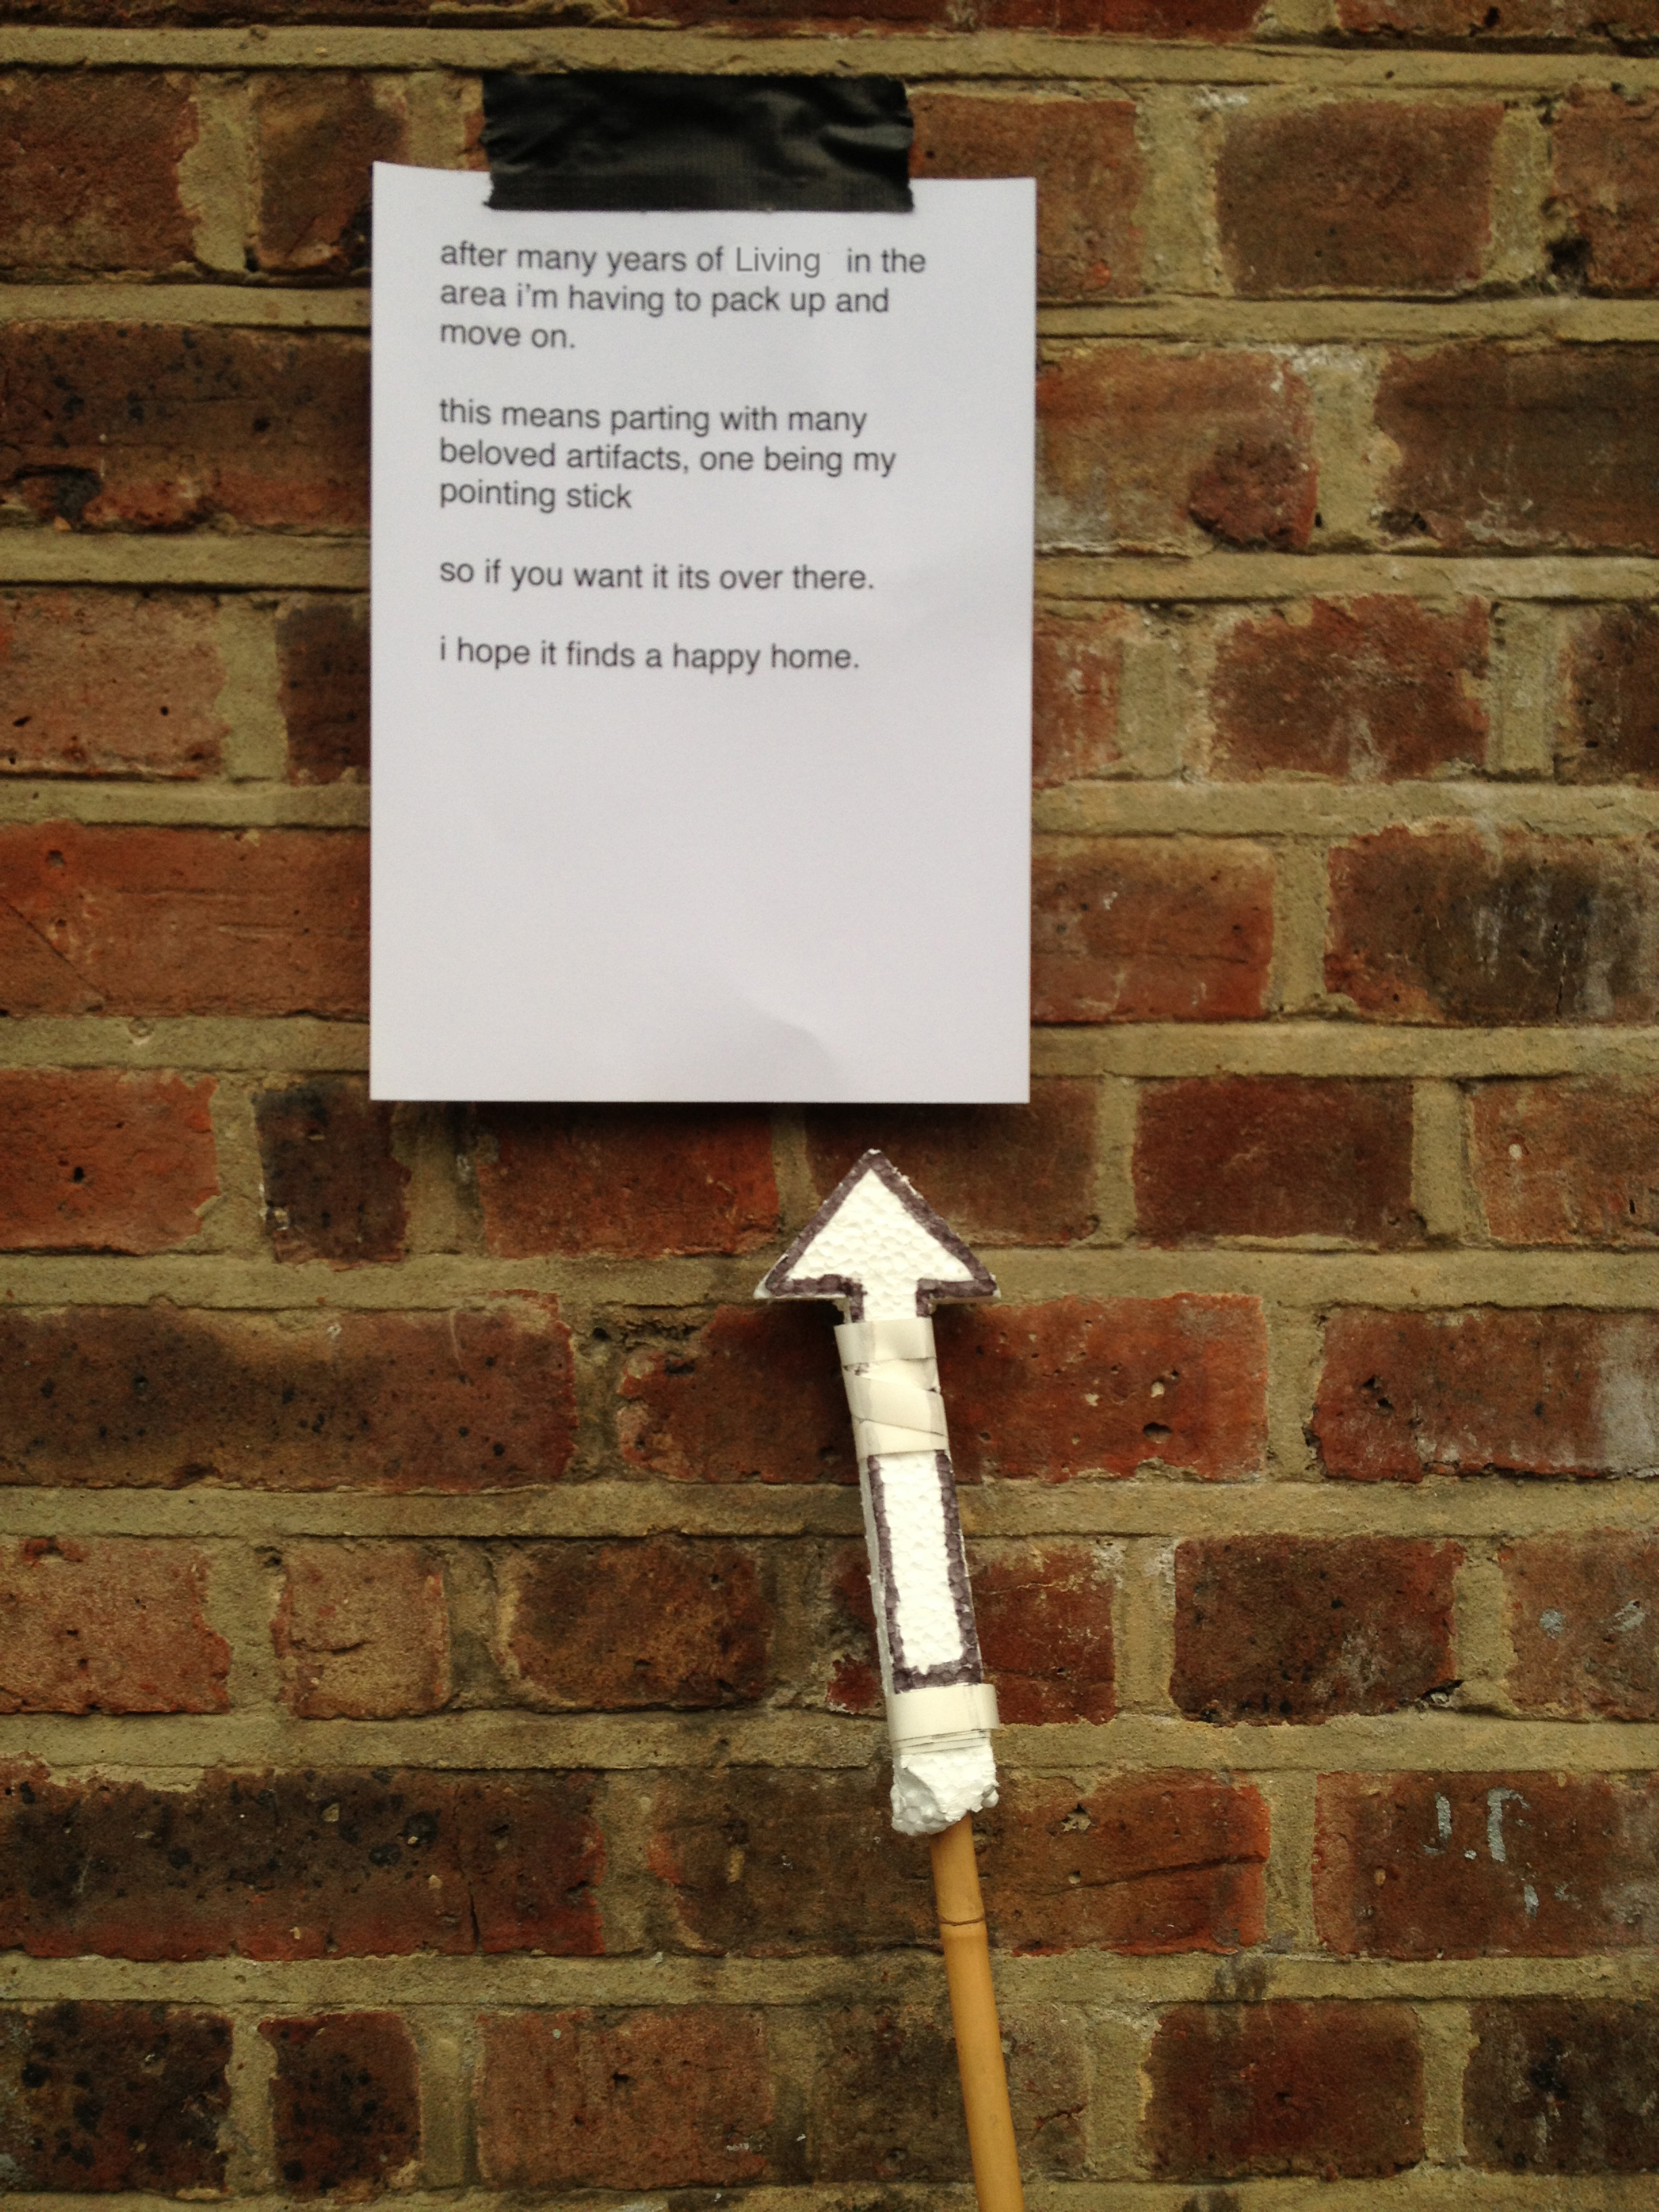 after many years of Living in the
area i'm having to pack up and
move on.
this means parting with many
beloved artifacts, one being my
pointing stick
so if you want it its over there.
i hope it finds a happy home.